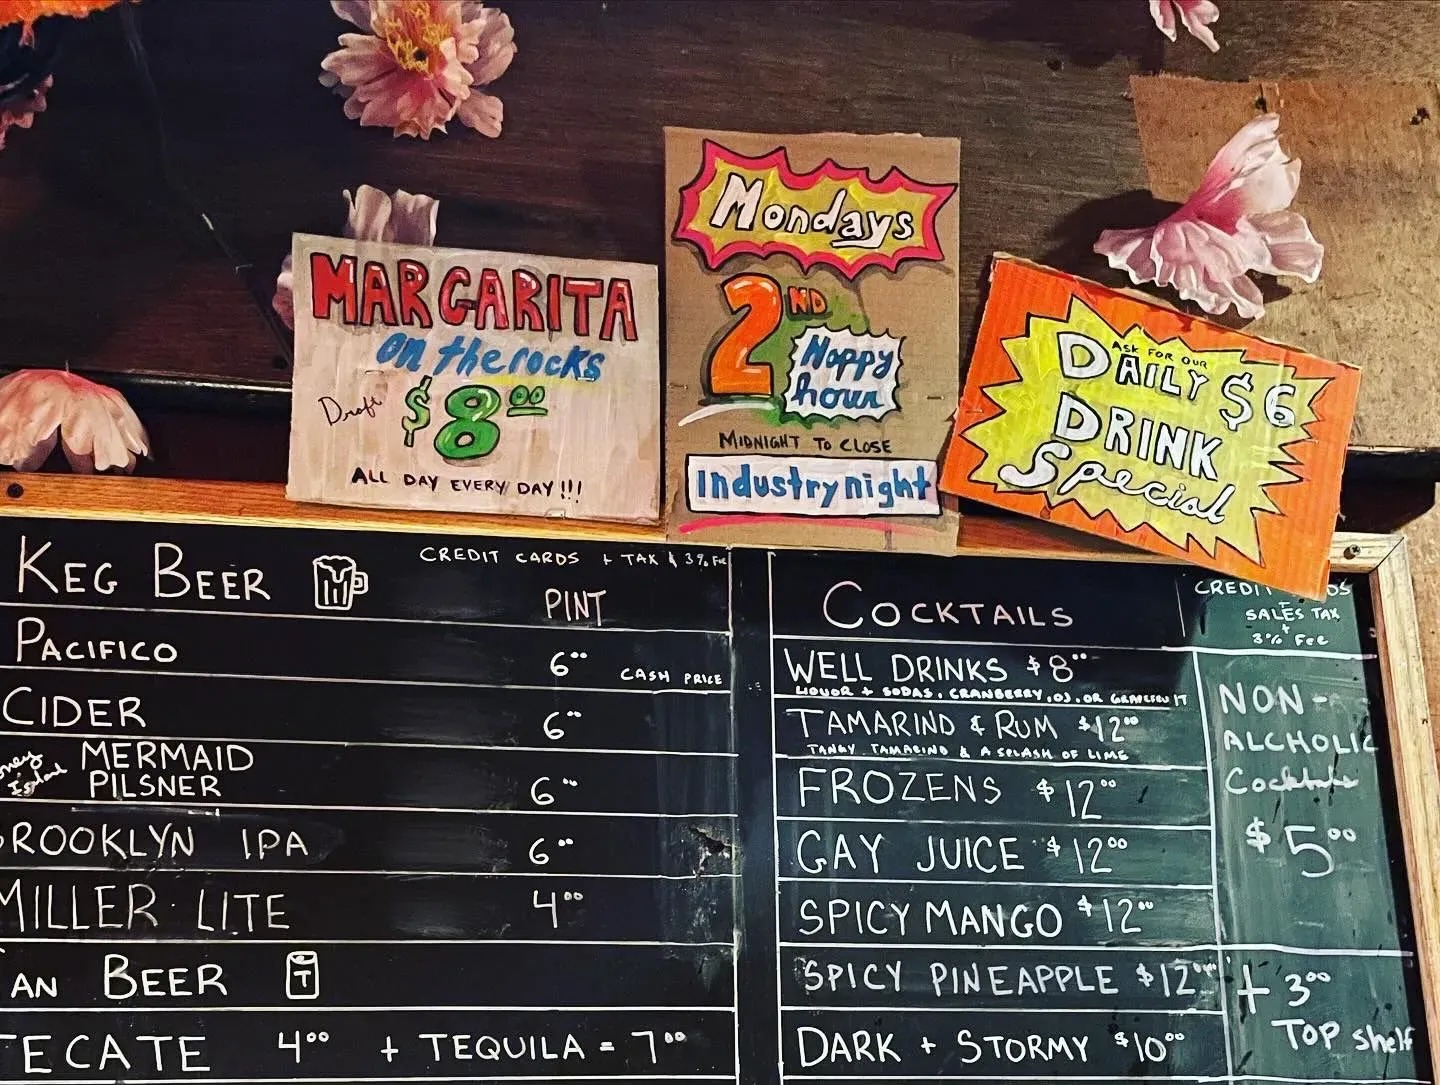 MARGARITA
on the rocks
Draft $8.00
ALL DAY EVERY DAY!!!
Mondays
2ND
Happy
hour
MIDNIGHT TO CLOSE
Industry night
ASK FOR OUR
DAILY $6
DRINK
Special
KEG BEER
CREDIT CARDS + TAX & 3% Fee
PINT
PACIFICO 6.00 CASH PRICE
CIDER 6.00
MERMAID
PILSNER 6.00
BROOKLYN IPA 6.00
MILLER LITE 4.00
CAN BEER
T
TECATE 4.00 + TEQUILA = 7.00
COCKTAILS
WELL DRINKS $8.00
LIQUOR + SODAS, CRANBERRY, OJ, OR GRAPEFRUIT
TAMARIND & RUM $12.00
TANGY TAMARIND & A SPLASH OF LIME
FROZENS $12.00
GAY JUICE $12.00
SPICY MANGO $12.00
SPICY PINEAPPLE $12.00
DARK + STORMY $10.00
SALES TAX
+
3% Fee
NON-
ALCHOLIC
Cocktails
$5.00
+ 3.00
TOP Shelf